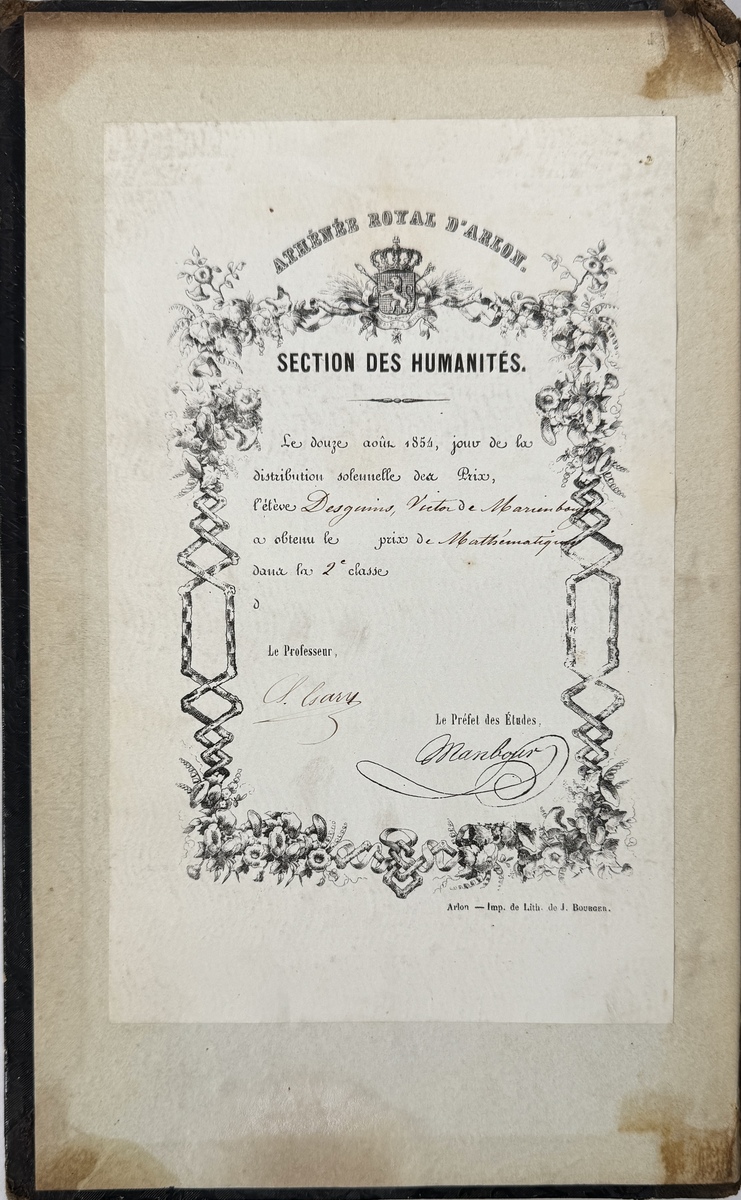 ATHÉNÉE ROYAL D'ARLON.
SECTION DES HUMANITÉS.
Le douze août 1854, jour de la
distribution solennelle des Prix,
l'élève Desguins, Victor de Marienbourg
a obtenu le prix de Mathématiques
dans la 2e classe
d
Le Professeur,
Le Préfet des Études,
Manbour
Arlon — Imp. de Lith. de J. BOURGER.